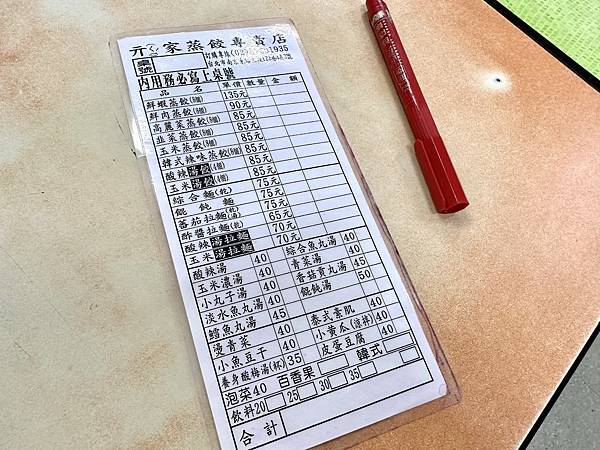 亓家蒸餃專賣店
桌號
訂購專線(02)
1935
內用務必寫上桌號
品 名 單價 數量 金 額
鮮蝦蒸餃(8個) 135元
鮮肉蒸餃(8個) 90元
高麗菜蒸餃(8個) 85元
韭菜蒸餃(8個) 85元
玉米蒸餃(8個) 85元
韓式辣味蒸餃(8個) 85元
酸辣湯餃(4個) 85元
玉米湯餃(4個) 85元
綜合麵(乾) 75元
餛飩麵 75元
蕃茄拉麵(乾湯) 75元
酢醬拉麵(乾) 65元
酸辣湯拉麵 70元
玉米湯拉麵 70元
酸辣湯 40 綜合魚丸湯 40
玉米濃湯 40 青菜湯 40
小丸子湯 40 香菇貢丸湯 45
淡水魚丸湯 40 餛飩湯 50
鱈魚丸湯 45
燙青菜 40 泰式素肌 40
小魚豆干 40 小黃瓜(涼拌) 40
養身酸梅湯(杯) 35 皮蛋豆腐 40
泡菜40 百香果 韓式
飲料20 25 30 35
合計